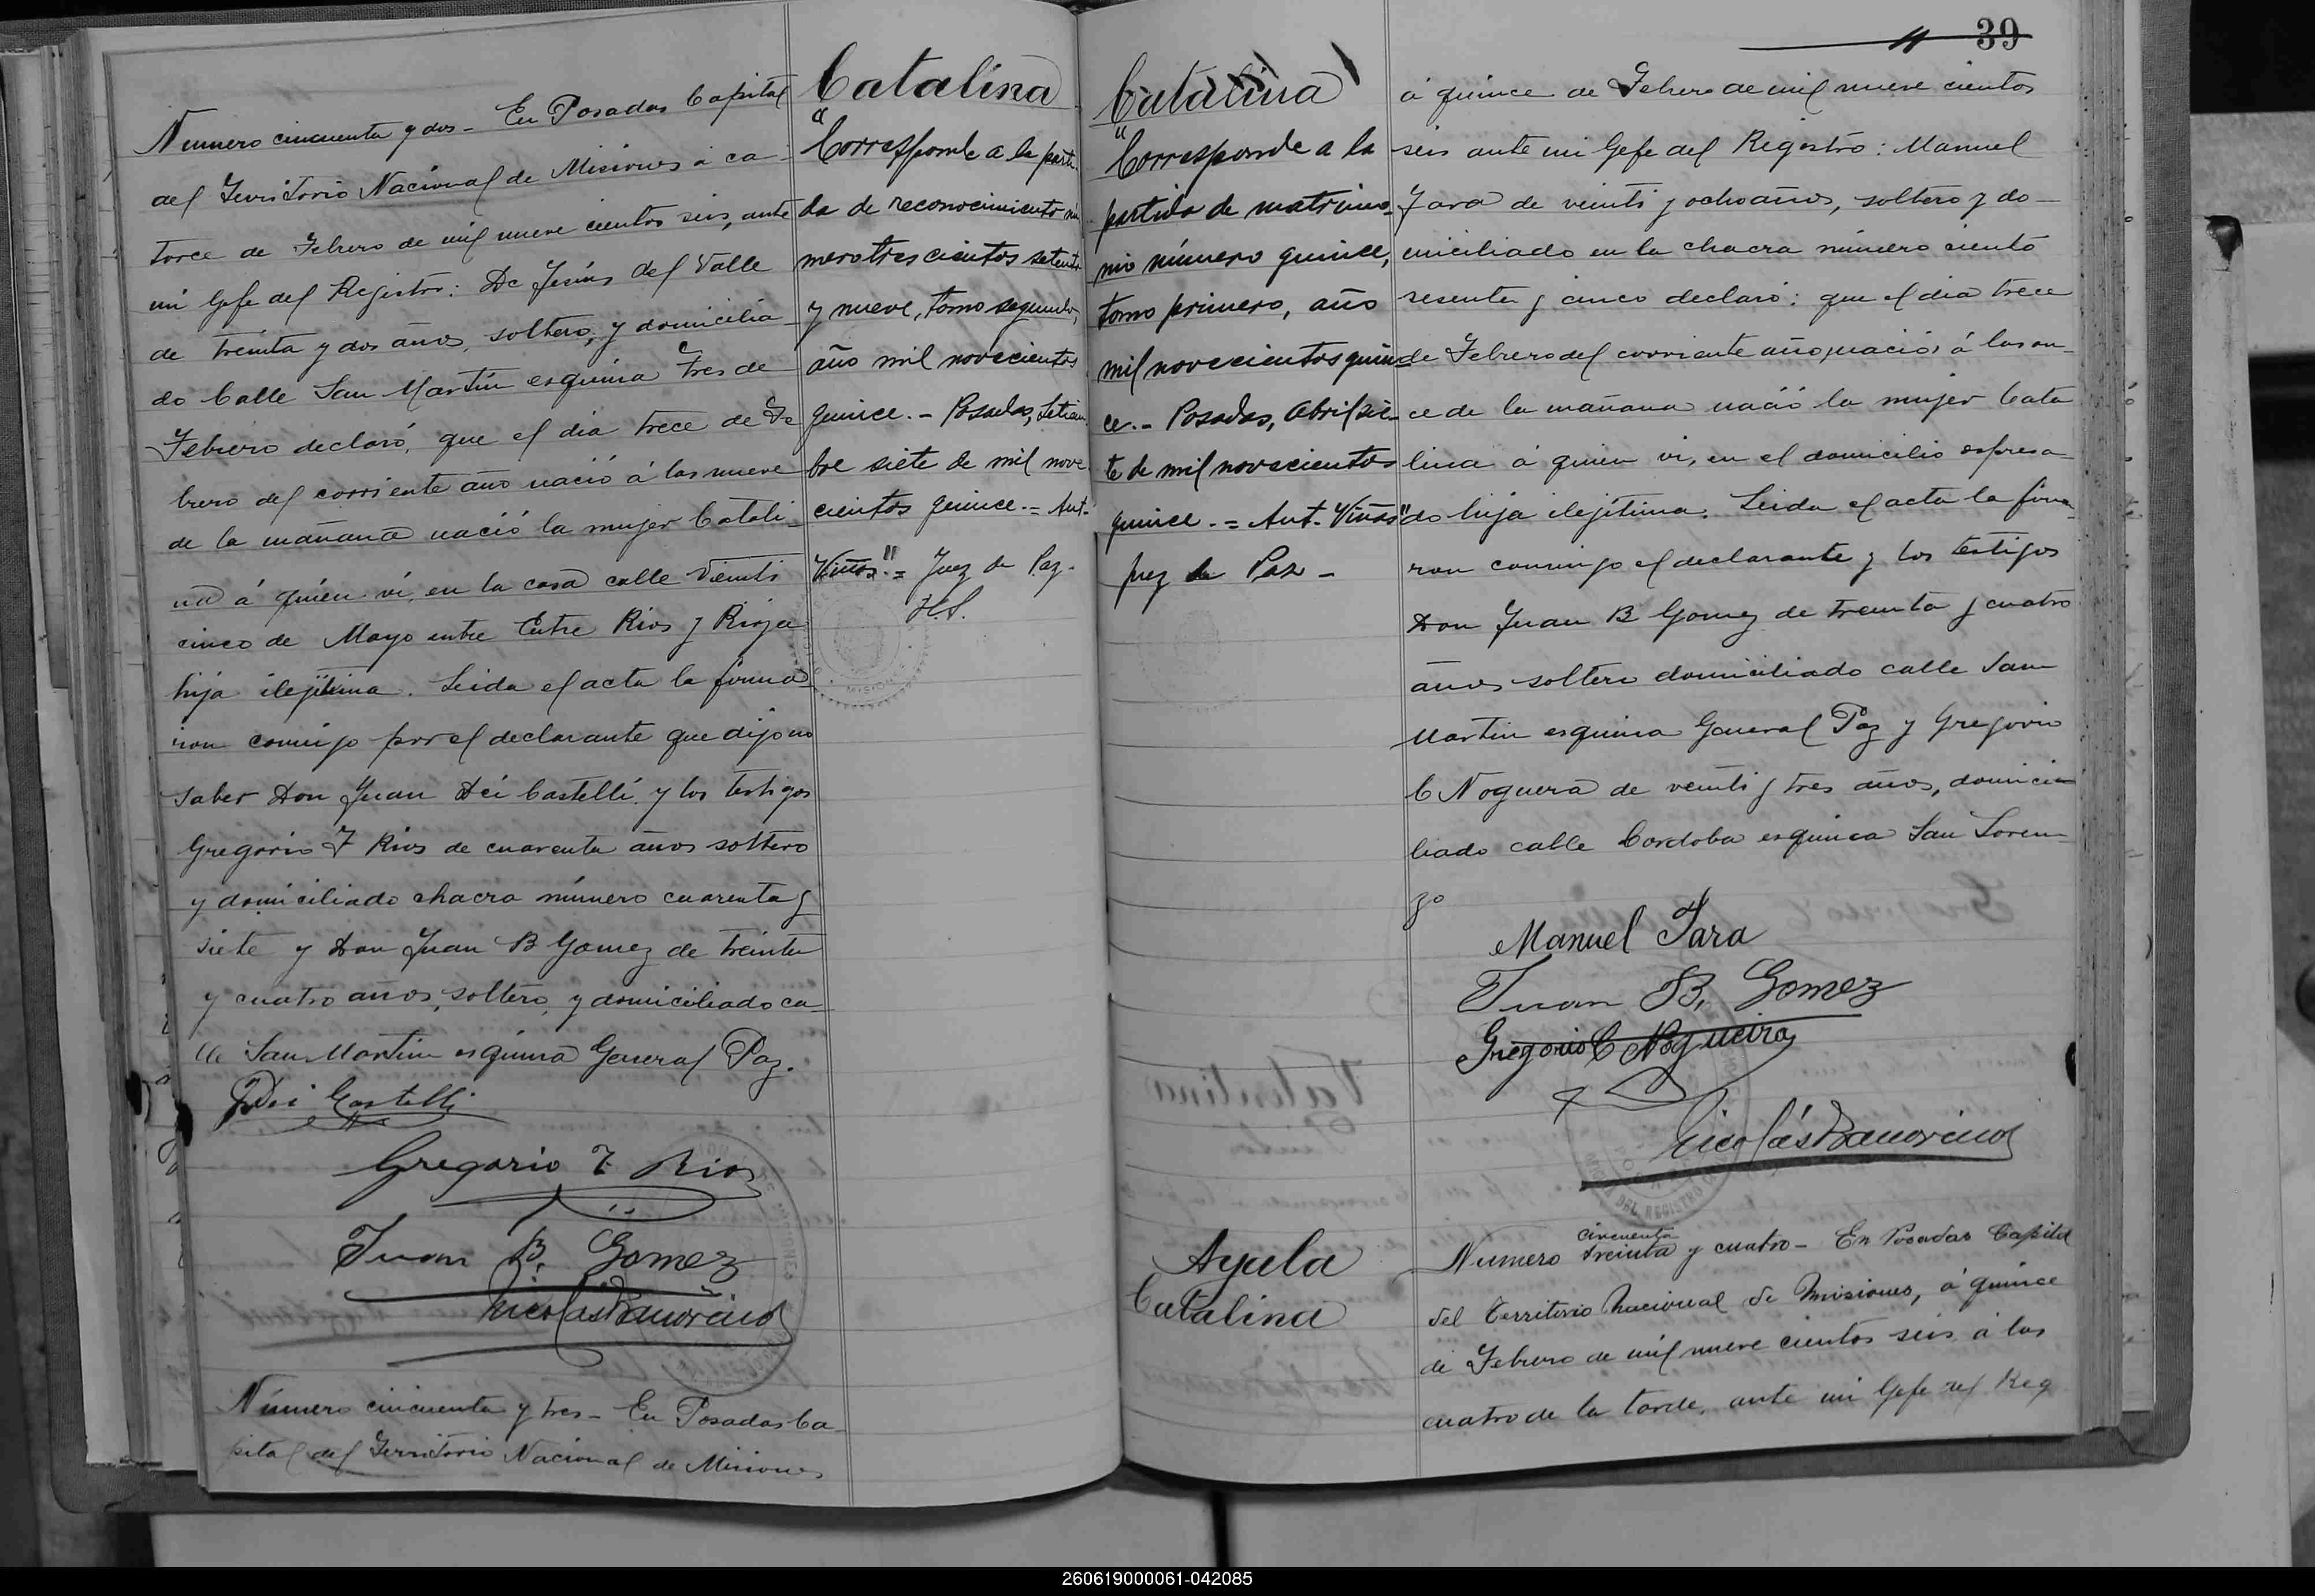 Numero cincuenta y dos - En Posadas Capital
del Territorio Nacional de Misiones á ca-
torce de Febrero de mil nueve cientos seis, ante
mi Gefe del Registro: De Jesús del Valle
de treinta y dos años, soltero, y domicilia
do Calle San Martin esquina Tres de
Febrero declaró, que el dia trece de Fe
brero del corriente año nació á las nueve
de la mañana nació la mujer Catali-
na á quien ví, en la casa calle Veinti
cinco de Mayo entre Entre Rios y Rioja
hija ilejitima. Leida el acta la firma
ron conmigo por el declarante que dijo no
saber Don Juan Dei Castelli y los testigos
Gregorio F Rios de cuarenta años soltero
y domiciliado chacra número cuarenta y
siete y Don Juan B Gomez de treinta
y cuatro años, soltero, y domiciliado ca-
lle San Martin esquina General Paz.
J Dei Castelli
Gregorio F Rios
Juan B. Gomez
Número cincuenta y tres - En Posadas Ca-
pital del Territorio Nacional de Misiones
Catalina
"Corresponde a la parti-
da de reconocimiento nú
mero tres cientos setenta
y nueve, tomo segundo,
año mil novecientos
quince. - Posadas, Setiem-
bre siete de mil nove-
cientos quince. = Ant.
Viñas." = Juez de Paz -
H.S.
MISIONES
39
Catalina
"Corresponde a la
partida de matrimo-
nio número quince,
tomo primero, año
mil novecientos quin-
ce. - Posadas, Abril sie-
te de mil novecientos
quince. = Ant. Viñas"
juez de Paz -
á quince de Febrero de mil nueve cientos
seis ante mi Gefe del Registro: Manuel
Jara de veinti y ocho años, soltero y do-
miciliado en la chacra número ciento
sesenta y cinco declaró: que el dia trece
de Febrero del corriente año nació á las on-
ce de la mañana nació la mujer Cata
lina á quien vi, en el domicilio espresa-
do hija ilejitima. Leida el acta la firma-
ron conmigo el declarante y los testigos
Don Juan B Gomez de treinta y cuatro
años soltero domiciliado calle San
Martin esquina General Paz y Gregorio
C Noguera de veinti y tres años, domici-
liado calle Cordoba esquina San Loren-
zo
Manuel Jara
Juan B. Gomez
Gregorio C Nogueira
DEL REGISTRO
Ayala
Catalina
cincuenta
Numero treinta y cuatro - En Posadas Capital
del Territorio Nacional de Misiones, á quince
de Febrero de mil nueve cientos seis á las
cuatro de la tarde, ante mi Gefe del Reg
260619000061-042085